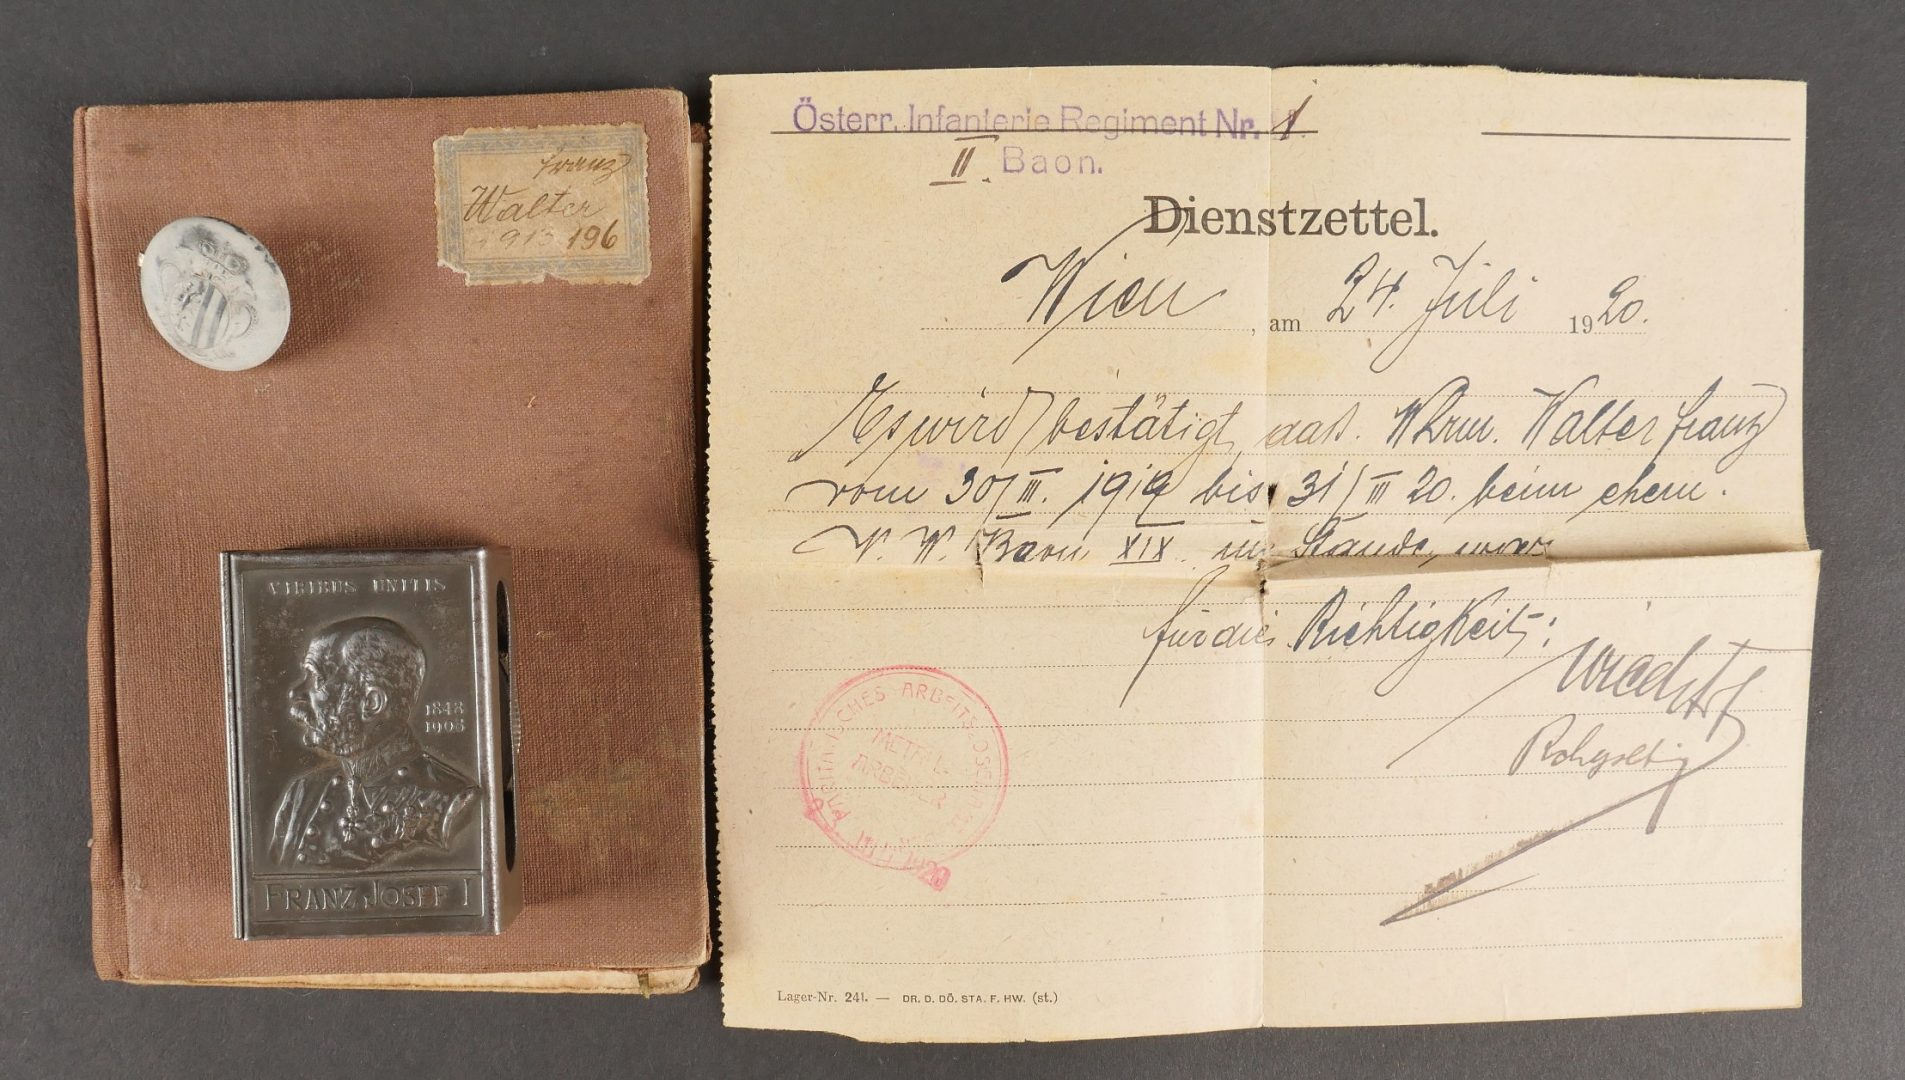 Franz
Walter
1913 196
VIRIBUS UNITIS
1848
1908
FRANZ JOSEF I
Österr. Infanterie Regiment Nr. 1.
II. Baon.
Dienstzettel.
Wien, am 24. Juli 1920.
Es wird bestätigt, daß. Whrm. Walter Franz
vom 30/III. 1919 bis 31/III 20. beim ehem.
V. W. Baon XIX im Stande, war
für die Richtigkeit:
PARITÄTISCHES ARBEITSLOSENAMT
METALL-
ARBEITER
Lager-Nr. 241. — DR. D. DÖ. STA. F. HW. (st.)